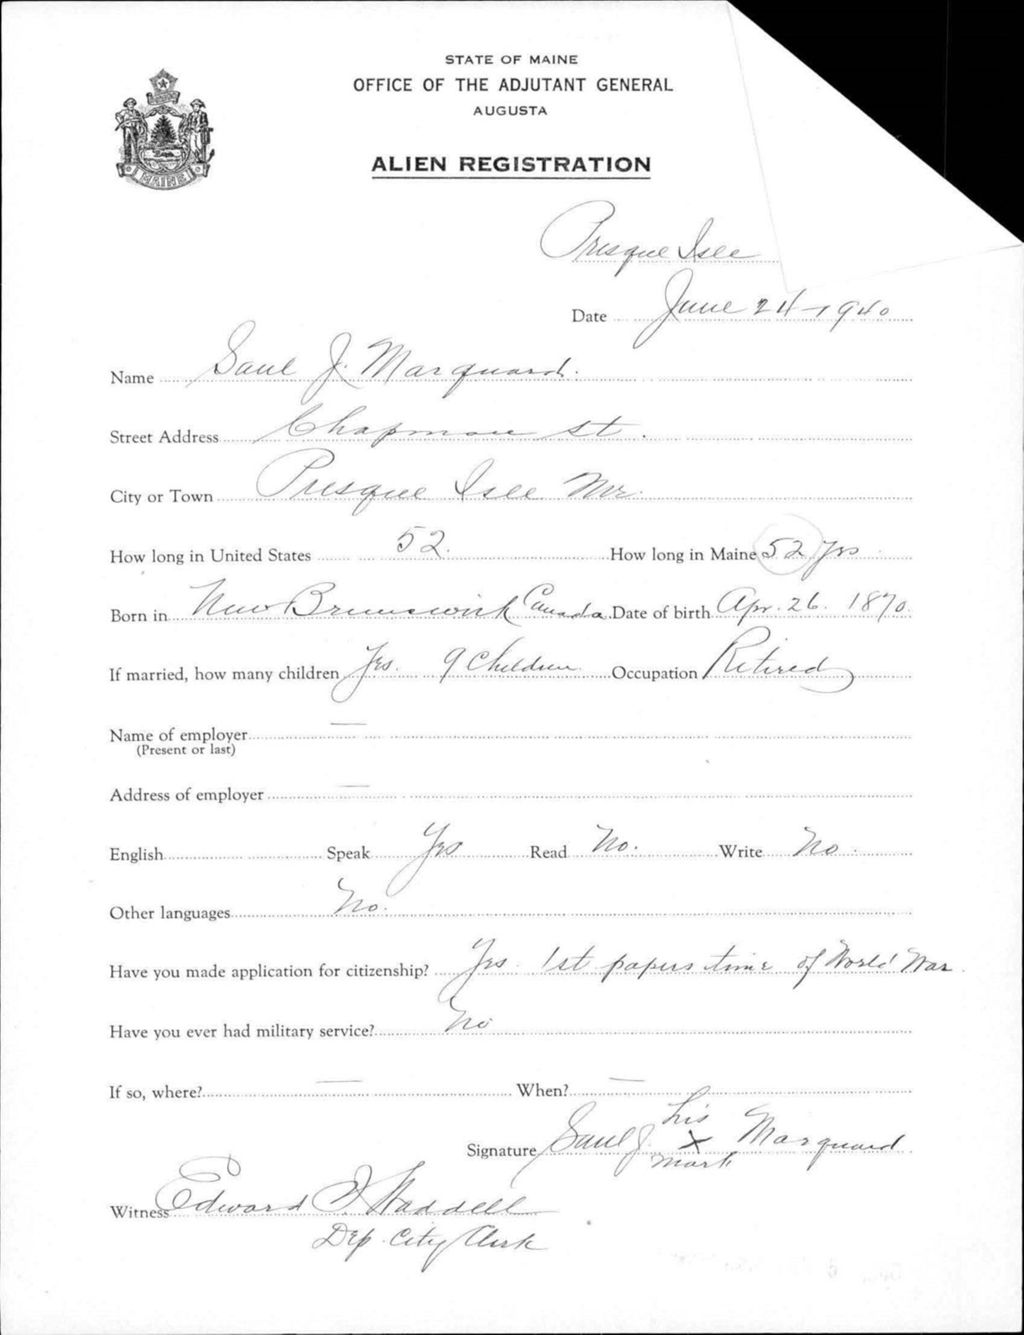 STATE OF MAINE
OFFICE OF THE ADJUTANT GENERAL
AUGUSTA
ALIEN REGISTRATION
MAINE
Presque Isle
Date June 24-1940
Name Saul J. Marquard.
Street Address Chapman St.
City or Town Presque Isle Me.
How long in United States 52. How long in Maine 52 yrs
Born in New Brunswick Canada Date of birth Apr. 26. 1870.
If married, how many children Yes. 9 Children Occupation Retired
Name of employer —
(Present or last)
Address of employer —
English Speak Yes Read No. Write No.
Other languages No.
Have you made application for citizenship? Yes. 1st papers time of World War
Have you ever had military service? No
If so, where? — When? —
Signature Saul J. his X mark Marquard
Witness Edward J. Waddell
Dep. City Clerk